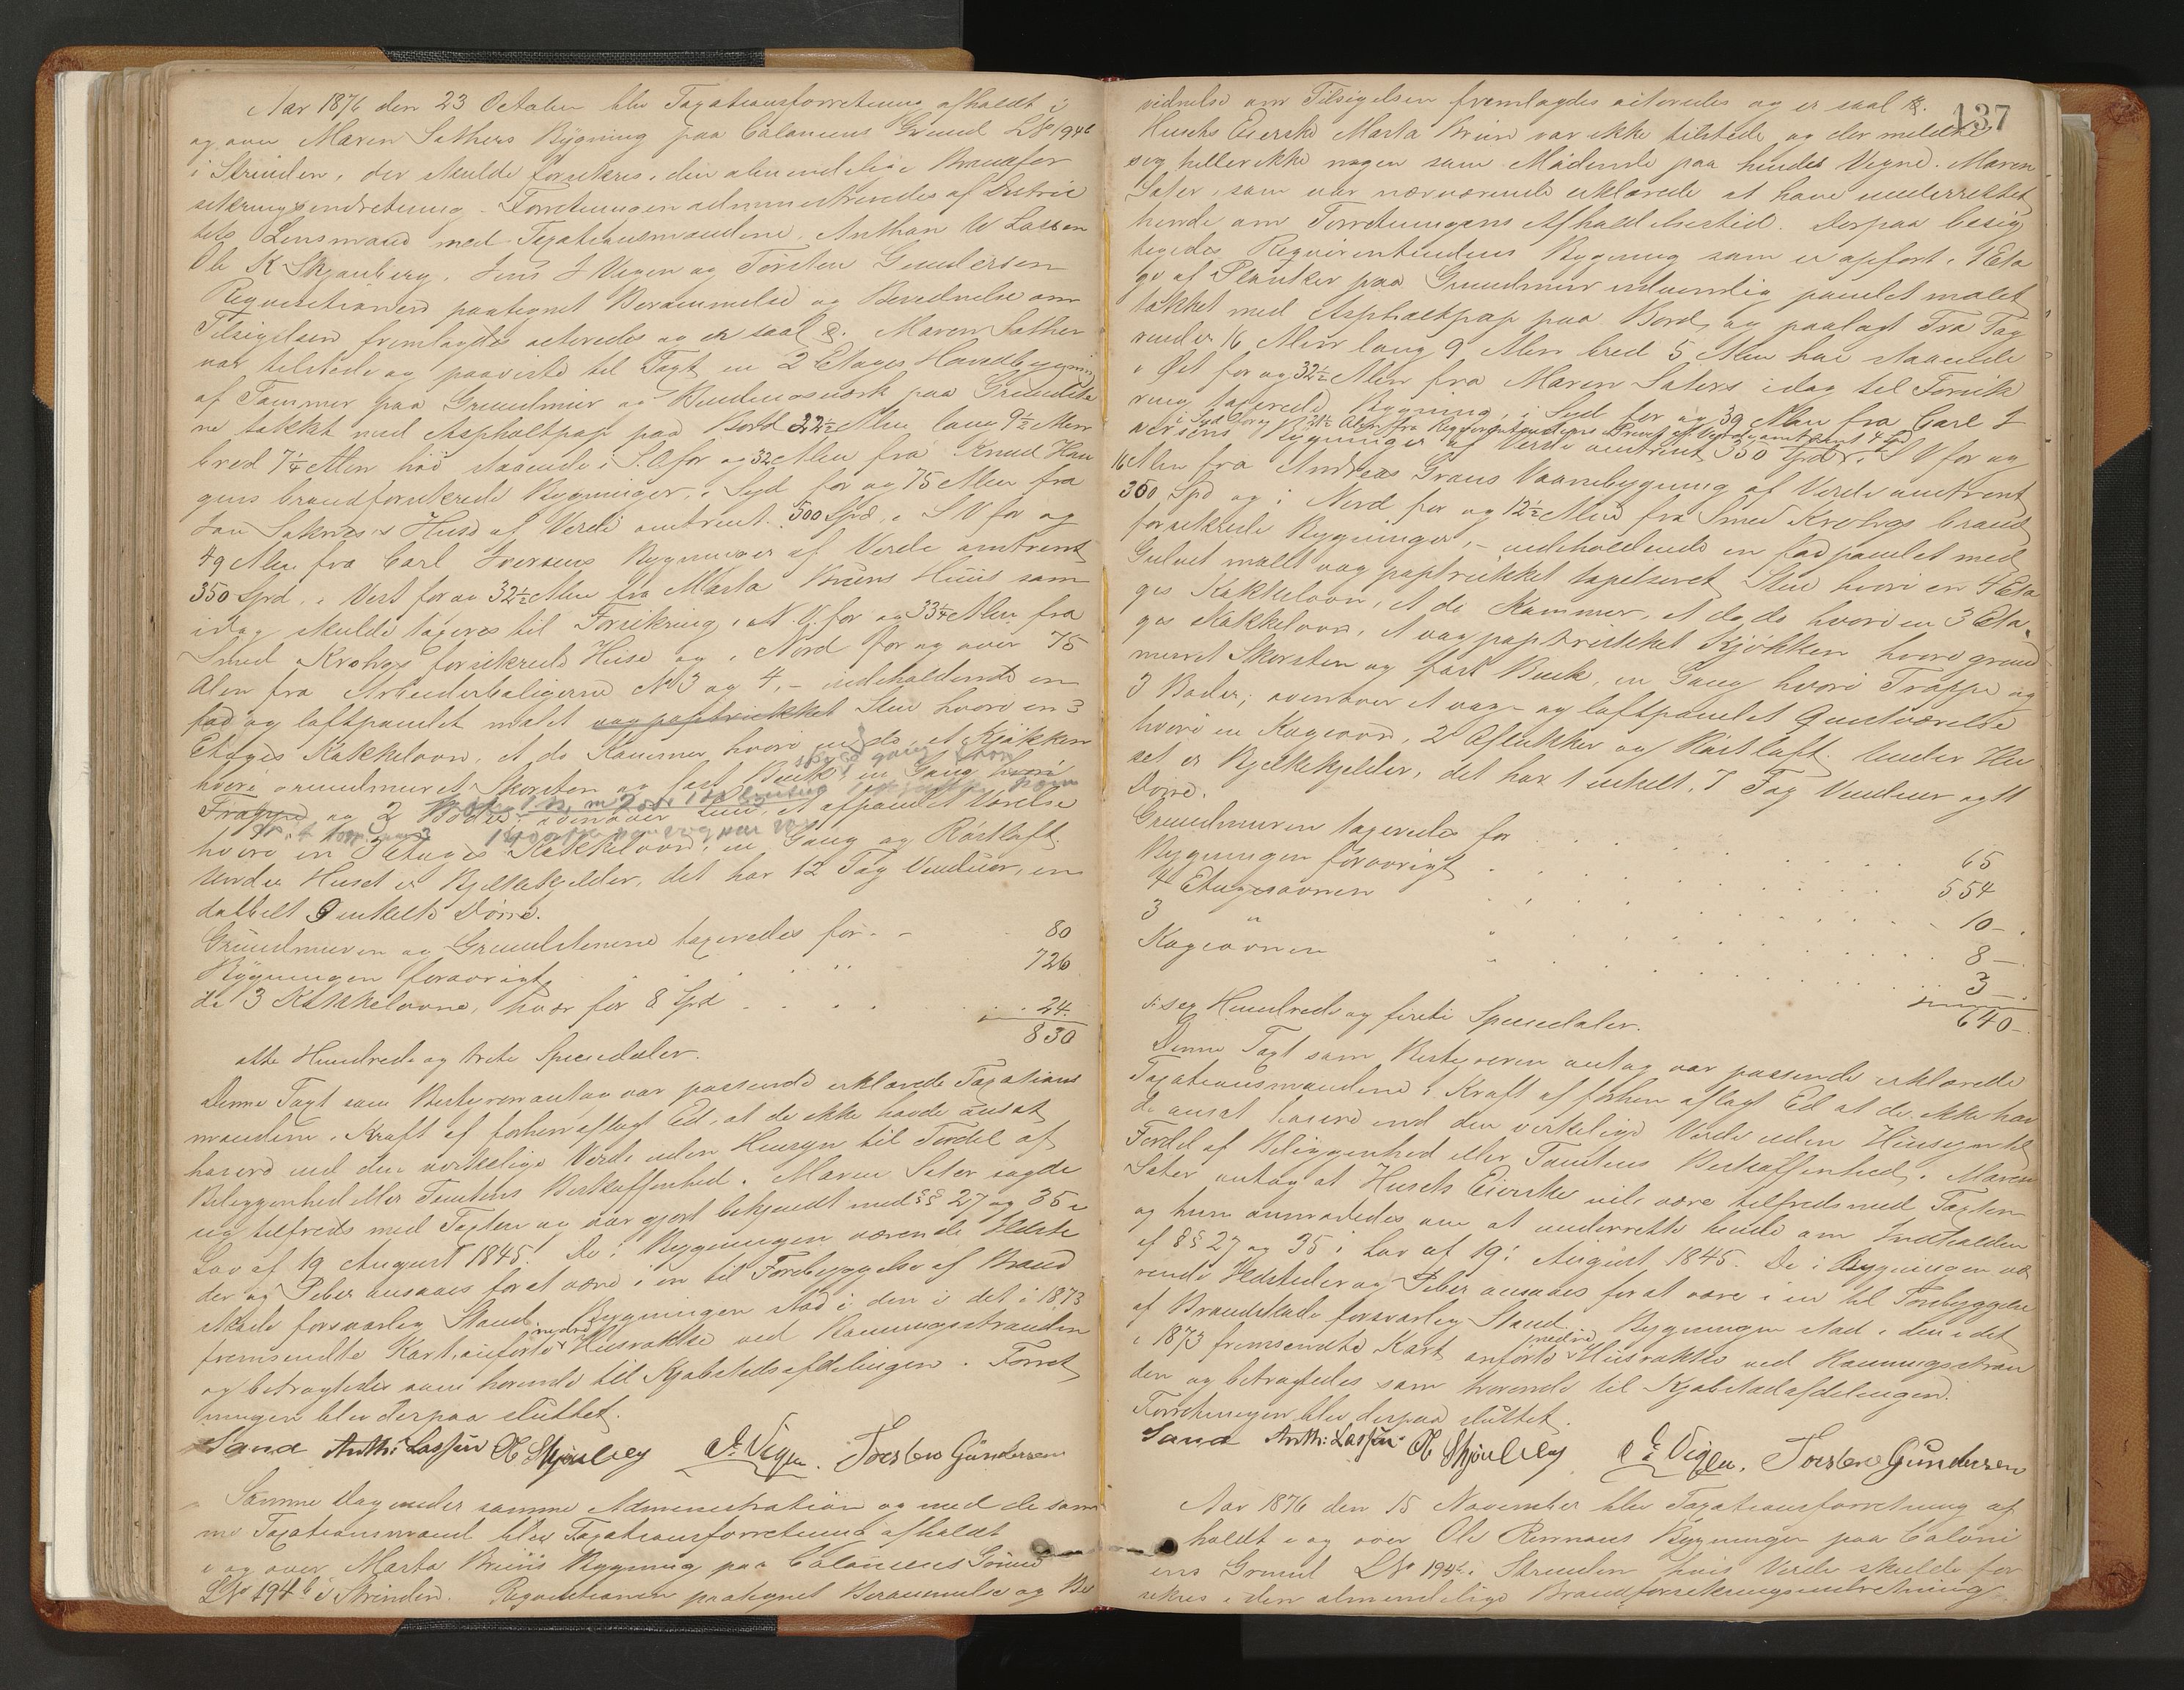 Aar 1876 den 23 October blev Taxationsforretning afholdt i
og over Maren Sathers Bygning paa Coloniens Grund LNo 194b
i Strinden, der skulde forsikres i den almindelige Brandfor
sikringsindretning. Forretningen administreredes af Distric
tets Lensmand med Taxationsmændene Anthon W Lassen
Ole K Skjønberg, Jens J Vigen og Torsten Gundersen
Requisitionen paategnet Berammelse og Bevidnelse om
Tilsigelsen fremlagdes acteredes og er saal. Maren Sather
var tilstede og paaviste til Taxt en 2 Etages Hovedbygning
af Tømmer paa Grundmur og Bindingsværk paa Grundste
ne tækket med Asphaltpap paa Bord 22½ Alen lang 9½ Alen
bred 7¼ Alen høi staaende i S.O for og 32 Alen fra Knud Hau
gens brandforsikrede Bygninger, i Syd for og 75 Alen fra
Jon Saknes's Huse af Verdi omtrent 500 Spd. i S V for og
49 Alen fra Carl Iversens Bygninger af Verdi omtrent
350 Spd., i Vest for og 32½ Alen fra Marta Bruns Huus som
idag skulde taxeres til Forsikring, i N.V. for og 33¼ Alen fra
Smed Krohgs forsikrede Huse og i Nord for og over 75
Alen fra Arbeiderboligerne No 3 og 4, – indeholdende en
fod og loftpanelet malet vægpaptrukket Stue hvori en 3
Etages Kakkelovn, et do Kammer hvori en do, et Kjøkken
hvori grundmuret Skorsten og fast Bænk, en Gang hvori
Trappe og 2 Boder; ovenover et afpanelet Værelse
hvori en 3 Etages Kakkelovn, en Gang og Røstloft.
Under Huset er Kjelkekjelder, det har 12 Fag Vinduer, en
dobbelt 9 enkelte Dørre.
Grundmuren og Grundstenene taxeredes for . – 80
Bygningen forøvrigt 726
de 3 Kakkelovne, hvær for 8 Spd 24.
830
otte Hundrede og treti Speciedaler.
Denne Taxt som Bestyreren antog var passende erklærede Taxations
mændene i Kraft af forhen aflagt Ed, at de ikke havde ansat
høiere end den virkelige Verdi uden Hensyn til Fordel af
Beliggenhed eller Tomtens Beskaffenhed. Maren Sater sagde
sig tilfreds med Taxten og var gjort bekjendt med §§ 27 og 35 i
Lov af 19 August 1845. De i Bygningen værende Ildste
der og Piber ansaaes for at være i en til Forebyggelse af Brand
skade forsvarlig Stand. Bygningen stod i den i det i 1873
fremsendte Kart anførte nedre Husrække ved Ranningsstranden
og betragtedes som hørende til Kjøbstadsafdelingen. Forret
ningen blev derpaa sluttet.
Sand Anth: Lassen O K Skjønberg J. J. Vigen. Torsten Gundersen
Samme Dag under samme Administration og med de sam
me Taxationsmænd blev Taxationsforretning afholdt
i og over Marta Bruns Bygning paa Coloniens Grund
LNo 194b i Strinden. Requisitionen paategnet Berammelse og Be
137
vidnelse om Tilsigelsen fremlagdes acteredes og er saal.
Husets Eierske Marta Brun var ikke tilstede og der meldte
sig heller ikke nogen som Mødende paa hendes Vegne. Maren
Sater, som var nærværende erklærede at have underrettet
hende om Forretningens Afholdelsestid. Derpaa besig
tigedes Requirentindens Bygning som er opført i 1 Eta
ge af Planker paa Grundmur udvendig panelet malet
tækket med Asphaltpap paa Bord og paalagt Træ Tag
rundt 16 Alen lang 9 Alen bred 5 Alen høi staaende
i Øst for og 32½ Alen fra Maren Saters idag til Forsik
ring taxerede Bygning, i Syd for og 39 Alen fra Carl I
versens Bygninger af Verdi omtrent 350 Spd. i S V for og
16 Alen fra Andreas Graus Vaanebygning af Verdi omtrent
300 Spd og i Nord for og 12½ Alen fra Smed Krohgs brand
forsikrede Bygninger, – indeholdende en fodpanelet med
Gulvet malt vægpaptrukket tapetseret Stue hvori en 4 Eta
ges Kakkelovn, et do Kammer, et do do hvori en 3 Eta
ges Kakkelovn, et vægpaptrukket Kjøkken hvori grund
muret Skorsten og fast Bænk, en Gang hvori Trappe og
3 Boder; ovenover et væg- og loftpanelet Qvistværelse
hvori en Kogeovn, 2 Aflukker og Røstloft. Under Hu
set er Kjelkekjelder, det har 1 enkelt, 7 Fag Vinduer og 11
Dørre.
Grundmuren taxeredes for 65
Bygningen forøvrigt 554
4 Etagesovnen 10 –
3 " 8 –
Kogeovnen 3 –
640 –
sex Hundrede og firti Speciedaler.
Denne Taxt som Bestyreren antog var passende erklærede
Taxationsmændene i Kraft af forhen aflagt Ed at de ikke hav
de ansat høiere end den virkelige Verdi uden Hensyn til
Fordel af Beliggenhed eller Tomtens Beskaffenhed. Maren
Sater antog at Husets Eierske vil være tilfreds med Taxten
og hun anmodedes om at underrette hende om Indholden
af §§ 27 og 35 i Lov af 19 August 1845. De i Bygningen væ
rende Ildsteder og Piber ansaaes for at være i en til Forebyggelse
af Brandskade forsvarlig Stand. Bygningen stod i den i det
i 1873 fremsendte Kart anførte nedre Husrække ved Ranningsstran
den og betragtedes som hørende til Kjøbstadafdelingen.
Forretningen blev derpaa sluttet.
Sand Anth: Lassen O K Skjønberg J. J. Vigen. Torsten Gundersen
Aar 1876 den 15 November blev Taxationsforretning af
holdt i og over Ole Bygninger paa Coloni
ens Grund LNo 194b i Strinden hvis Verdi skulde for
sikres i den almindelige Brandforsikringsindretning